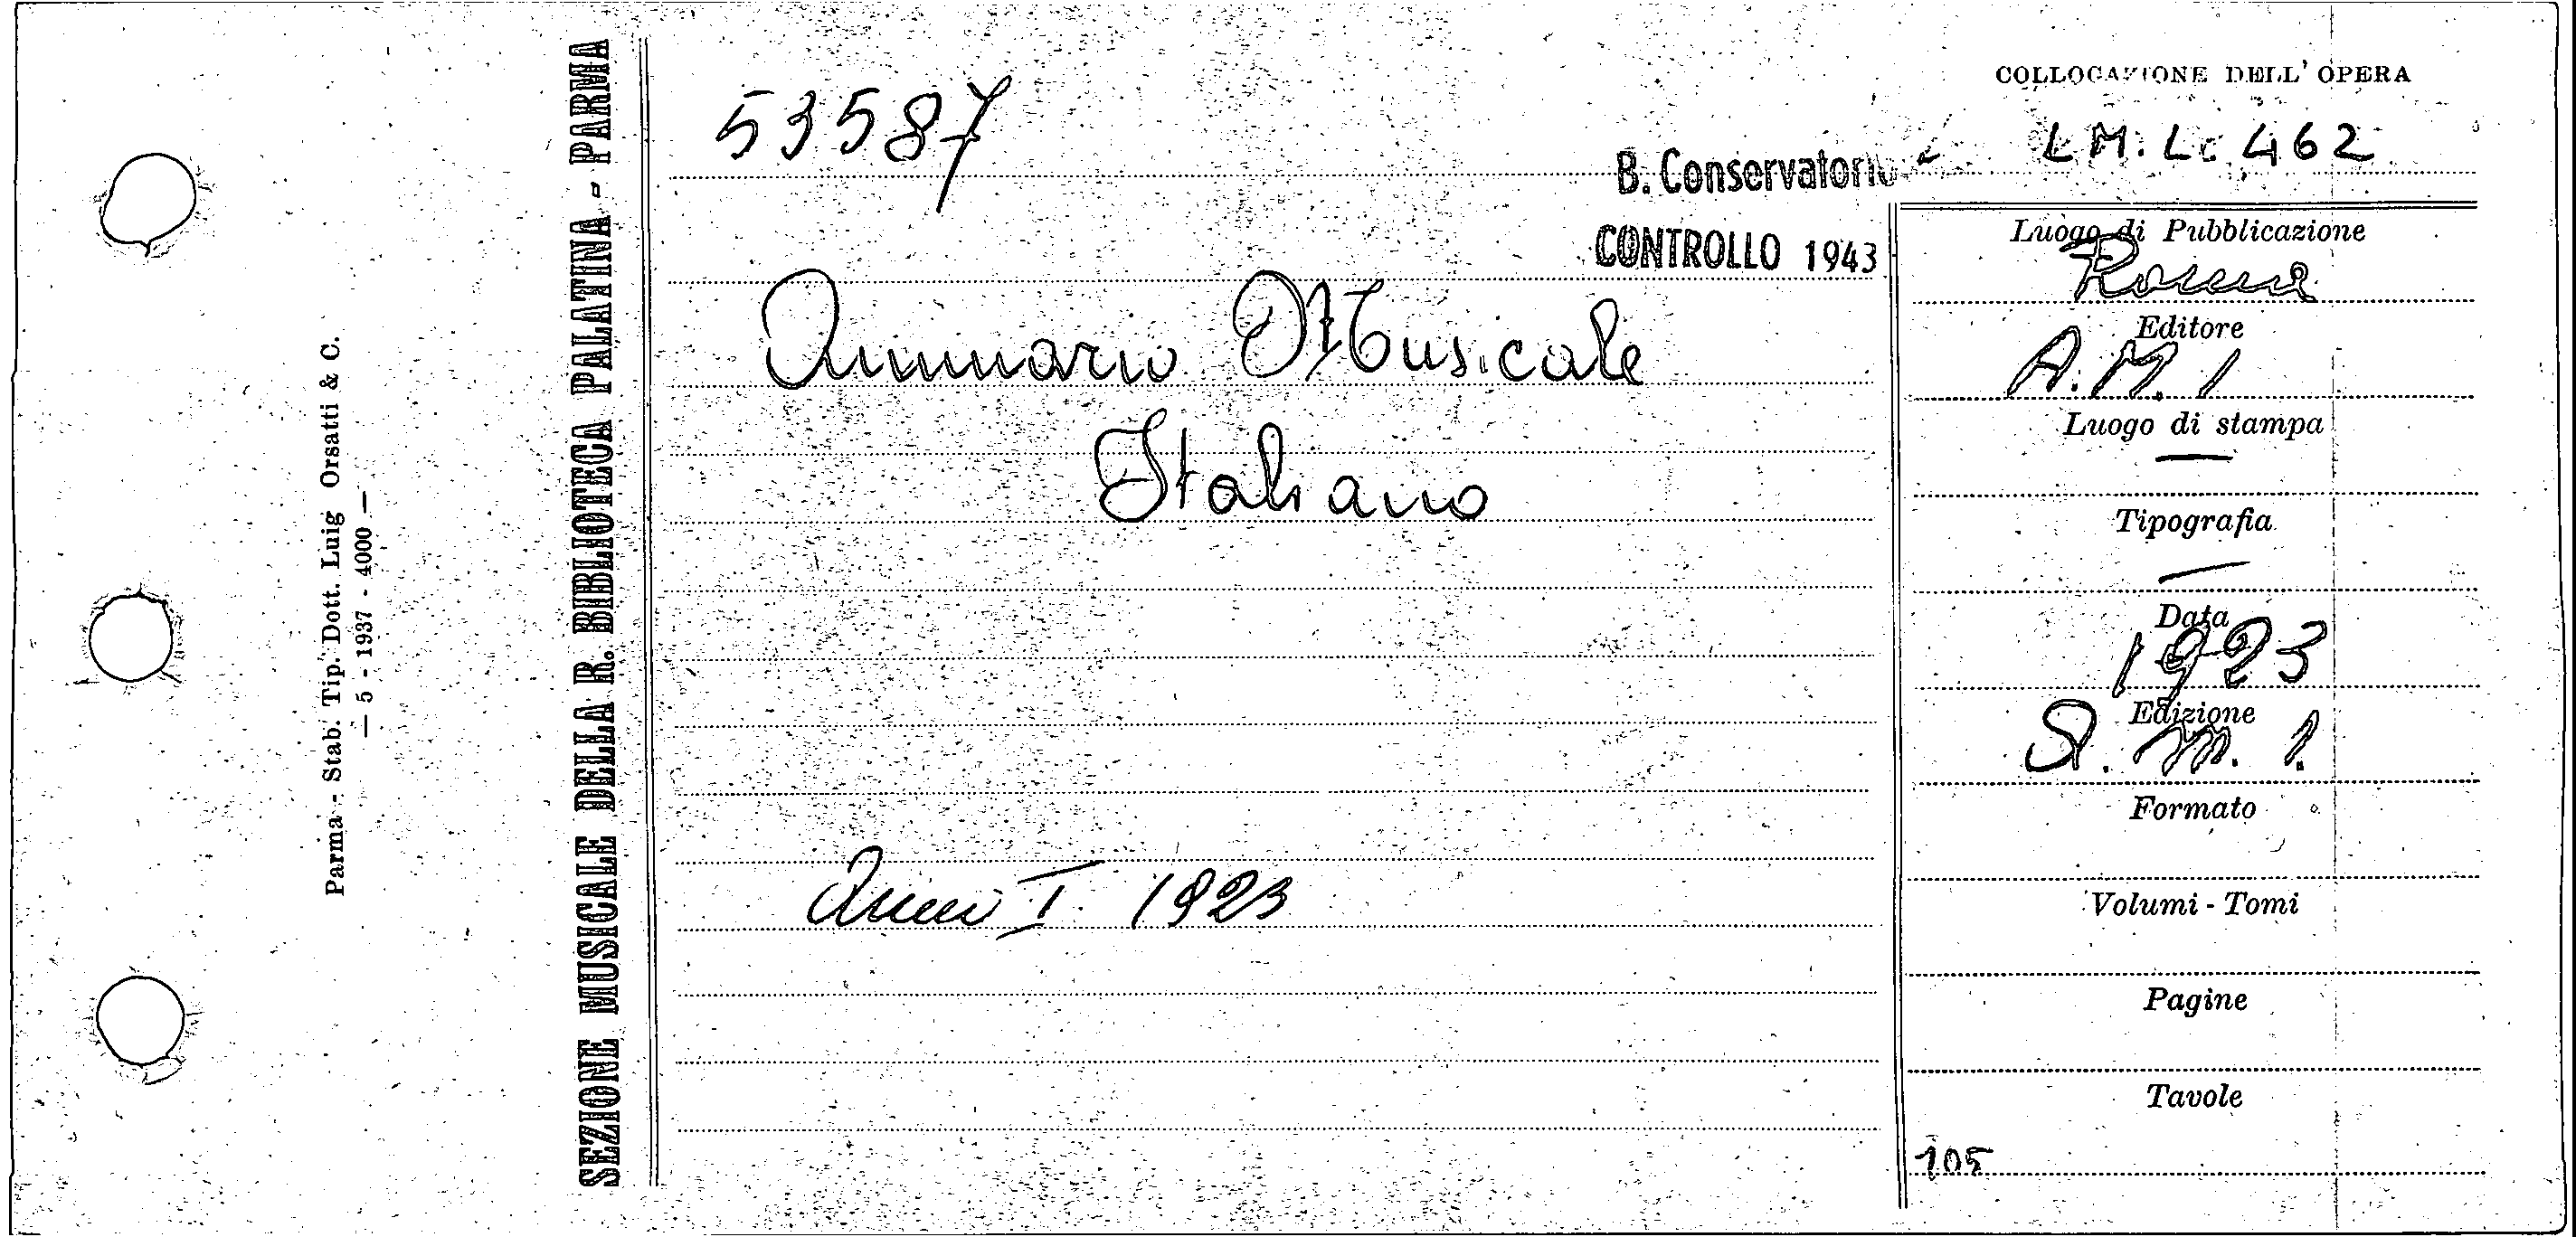 Parma - Stab. Tip. Dott. Luig Orsati & C.
— 5 - 1937 - 4000 —
SEZIONE MUSICALE DELLA R. BIBLIOTECA PALATINA - PARMA
53587
B. Conservatorio
CONTROLLO 1943
Annuario Musicale
Italiano
Anno I 1923
COLLOCAZIONE DELL' OPERA
L M. L. 462
Luogo di Pubblicazione
Roma
Editore
A. M. I
Luogo di stampa
—
Tipografia
—
Data
1923
Edizione
A. M. I.
Formato
Volumi - Tomi
Pagine
Tavole
105